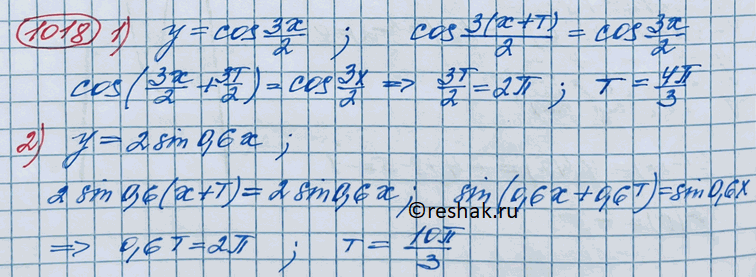 1018 1) y = cos 3x/2 ; cos 3(x+T)/2 = cos 3x/2
cos(3x/2 + 3T/2) = cos 3x/2 => 3T/2 = 2π ; T = 4π/3
2) y = 2 sin 0,6x ;
2 sin 0,6(x+T) = 2 sin 0,6x ; sin(0,6x + 0,6T) = sin 0,6x
©reshak.ru
=> 0,6T = 2π ; T = 10π/3